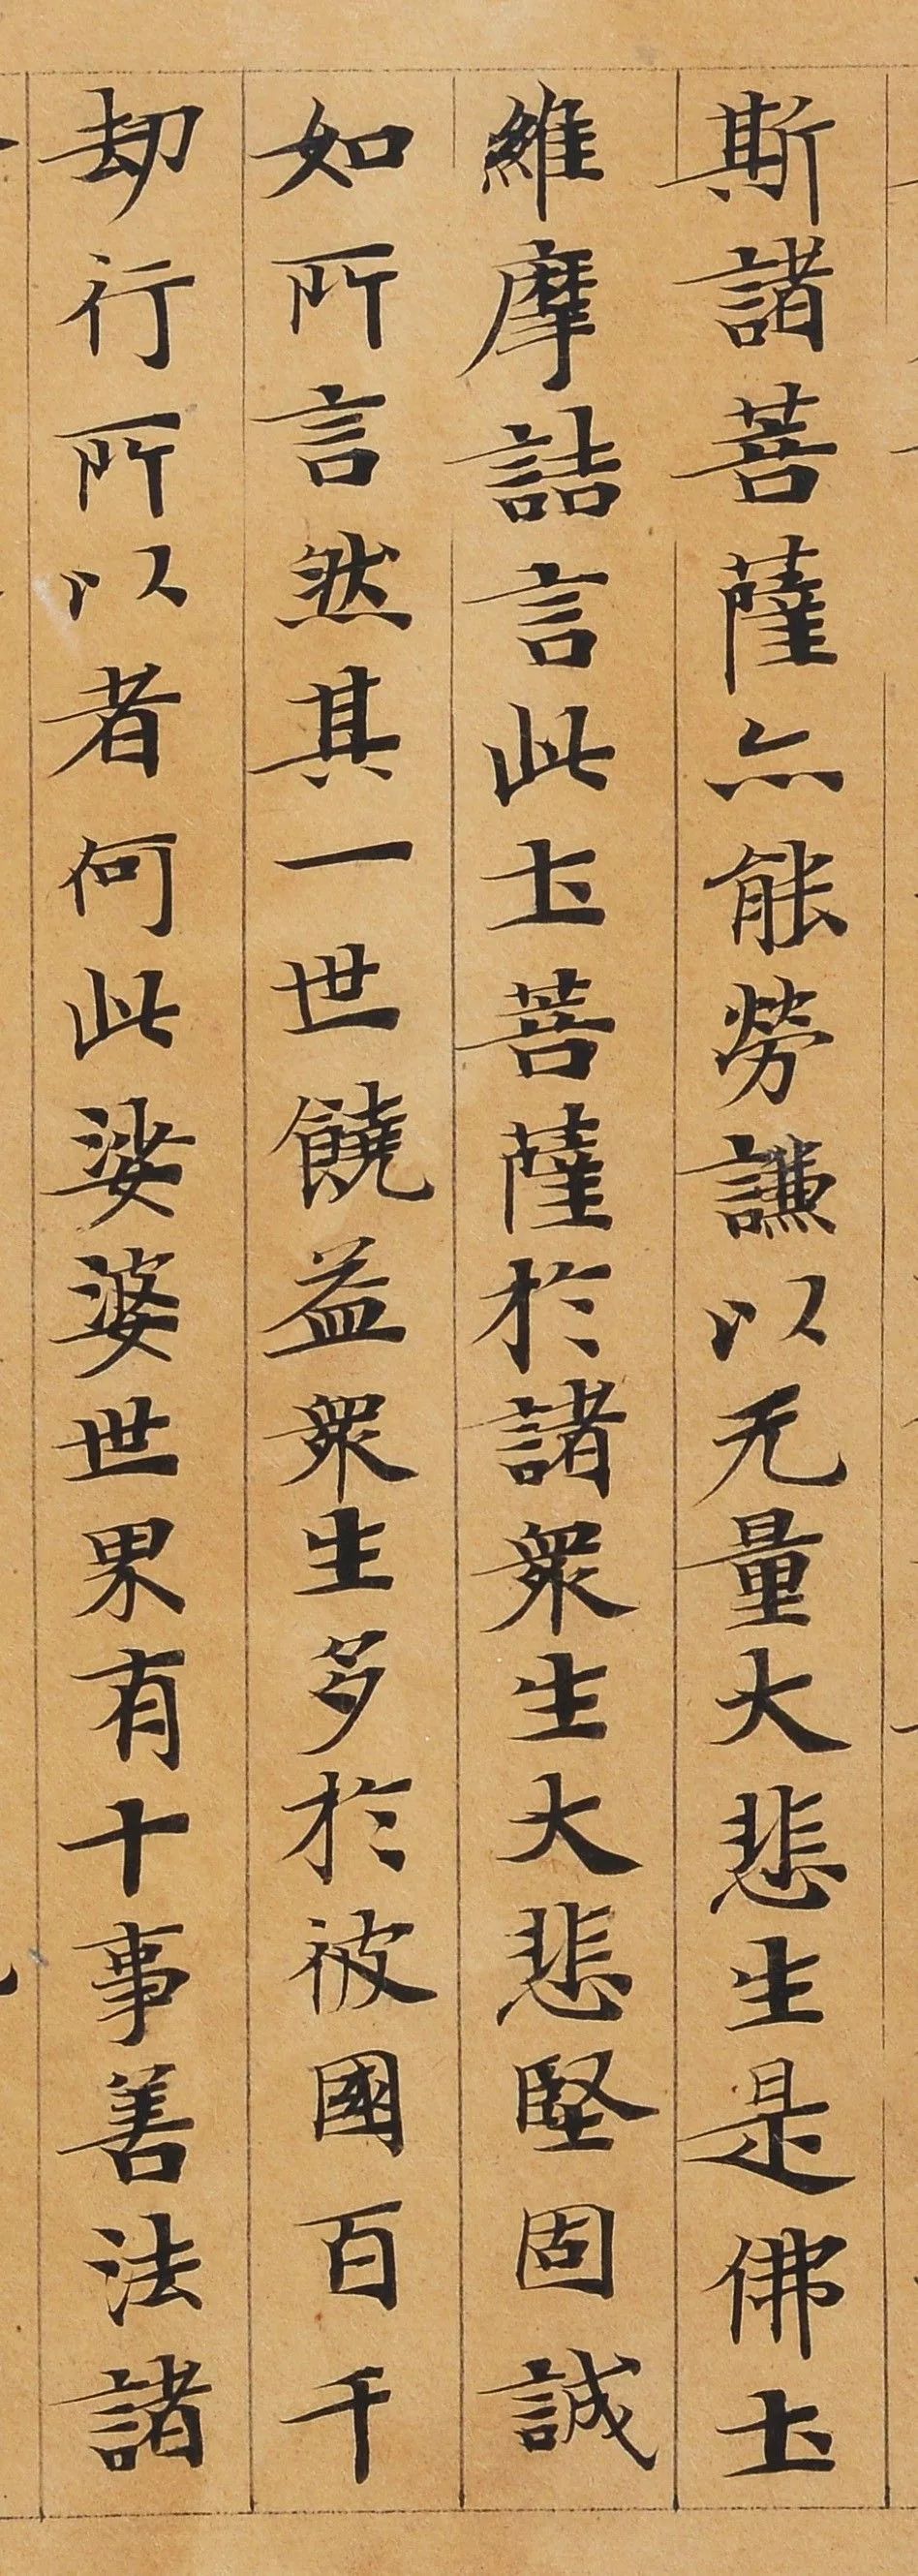 斯諸菩薩亦能勞謙以无量大悲生是佛土
維摩詰言此土菩薩於諸眾生大悲堅固誠
如所言然其一世饒益眾生多於彼國百千
劫行所以者何此娑婆世界有十事善法諸